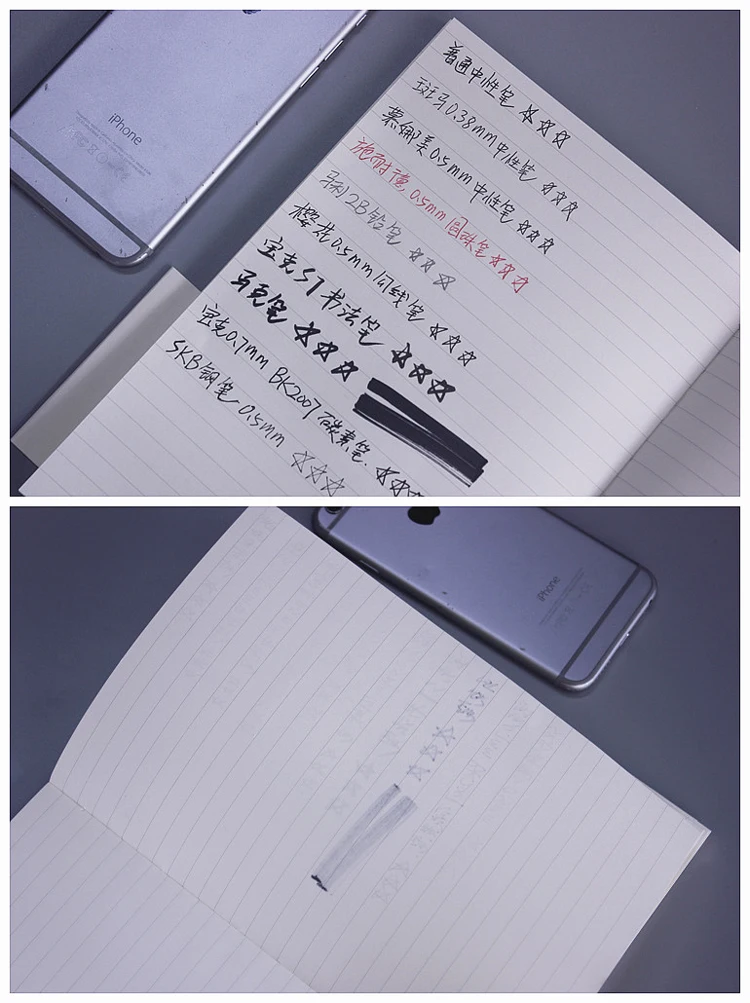 iPhone
普通中性笔 ☆☆☆
斑马0.38mm中性笔 ☆☆☆
慕娜美0.5mm中性笔 ☆☆☆
施耐德 0.5mm圆珠笔 ☆☆☆
马利2B铅笔 ☆☆☆
樱花0.5mm勾线笔 ☆☆☆
宝克S1书法笔 ☆☆☆
马克笔 ☆☆☆
宝克0.7mm BK2007碳素笔. ☆☆☆
SKB钢笔 0.5mm ☆☆☆
iPhone